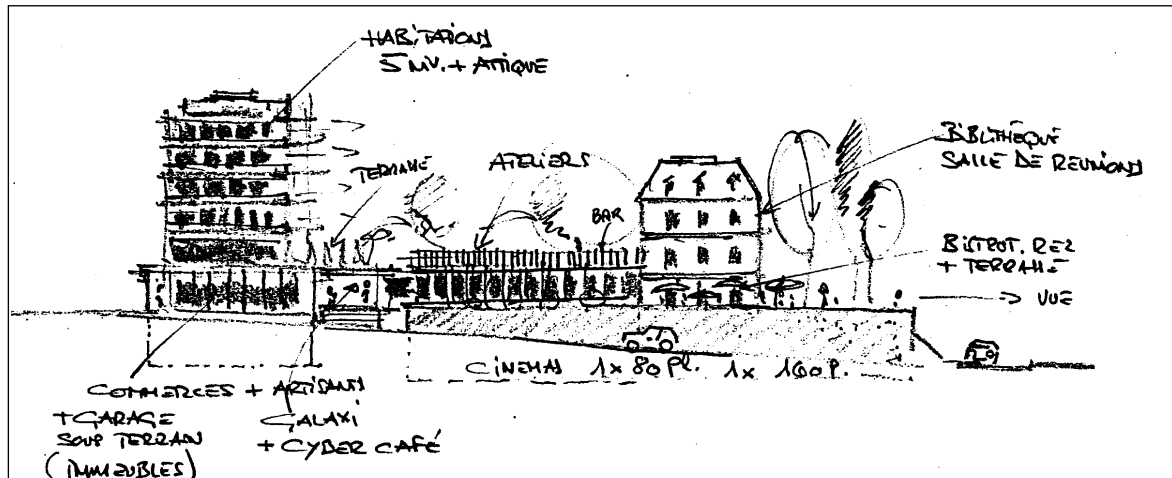 HABITATIONS
5 NIV. + ATTIQUE
TERRASSE
ATELIERS
BAR
BIBLITHÈQUE
SALLE DE REUNIONS
BISTROT. REZ
+ TERRASSE
VUE
CINEMAS 1x80 Pl. 1x 160 P.
COMMERCES + ARTISANS
+ GARAGE
SOUS TERRAIN
(IMMEUBLES)
GALAXI
+ CYBER CAFÉ